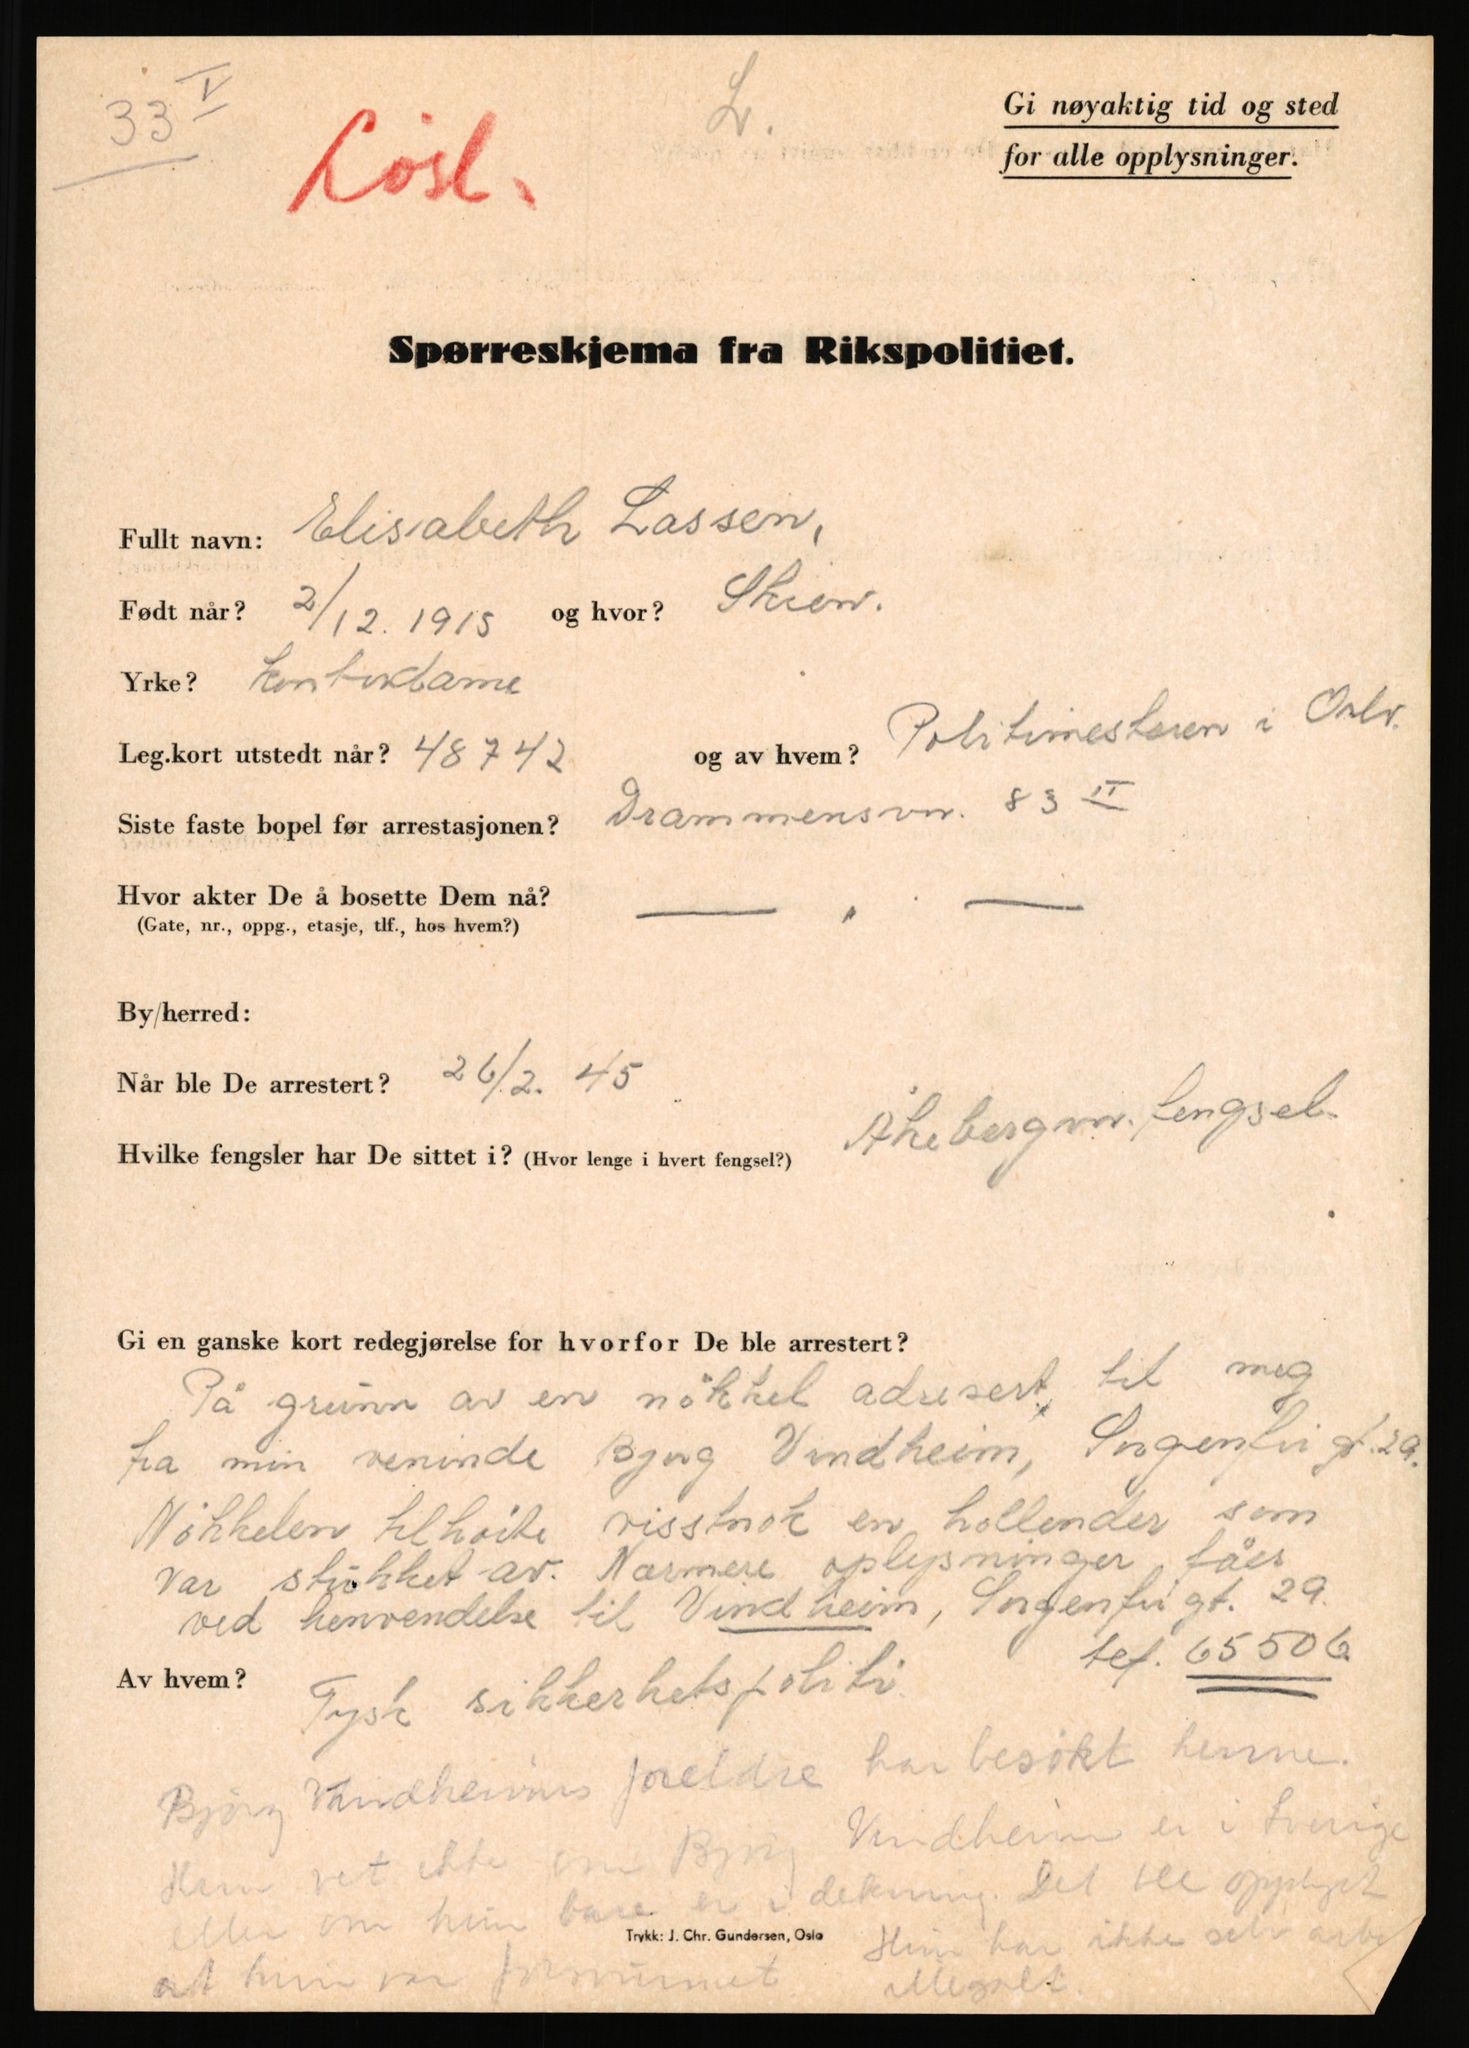 33 V
L.
Gi nøyaktig tid og sted
for alle opplysninger.
Løsl.
Spørreskjema fra Rikspolitiet.
Fullt navn: Elisabeth Lassen,
Født når? 2/12. 1915 og hvor? Skien.
Yrke? Kontordame
Leg.kort utstedt når? 48742 og av hvem? Politimesteren i Oslo.
Siste faste bopel før arrestasjonen? Drammensvn. 83 II
Hvor akter De å bosette Dem nå? — " —
(Gate, nr., oppg., etasje, tlf., hos hvem?)
By/herred:
Når ble De arrestert? 26/2. 45
Hvilke fengsler har De sittet i? (Hvor lenge i hvert fengsel?) Åkebergvn. fengsel.
Gi en ganske kort redegjørelse for hvorfor De ble arrestert?
På grunn av en nökkel adresert til meg
fra min veninde Bjørg Vindheim, Sorgenfrigt. 29.
Nökkelen tilhöite visstnok en hollender som
var stukket av. Nærmere oplysninger fåes
ved henvendelse til Vindheim, Sorgenfrigt. 29.
tef. 65506
Av hvem? Tysk sikkerhetspoliti.
Björg Vindheims foreldre har besökt henne.
Hun vet ikke om Björg Vindheim er i Sverige
eller om hun bare er i dekning. Det ble opplyst
at hun var forsvunnet. Hun har ikke selv arbe
illegalt.
Trykk: J. Chr. Gundersen, Oslo